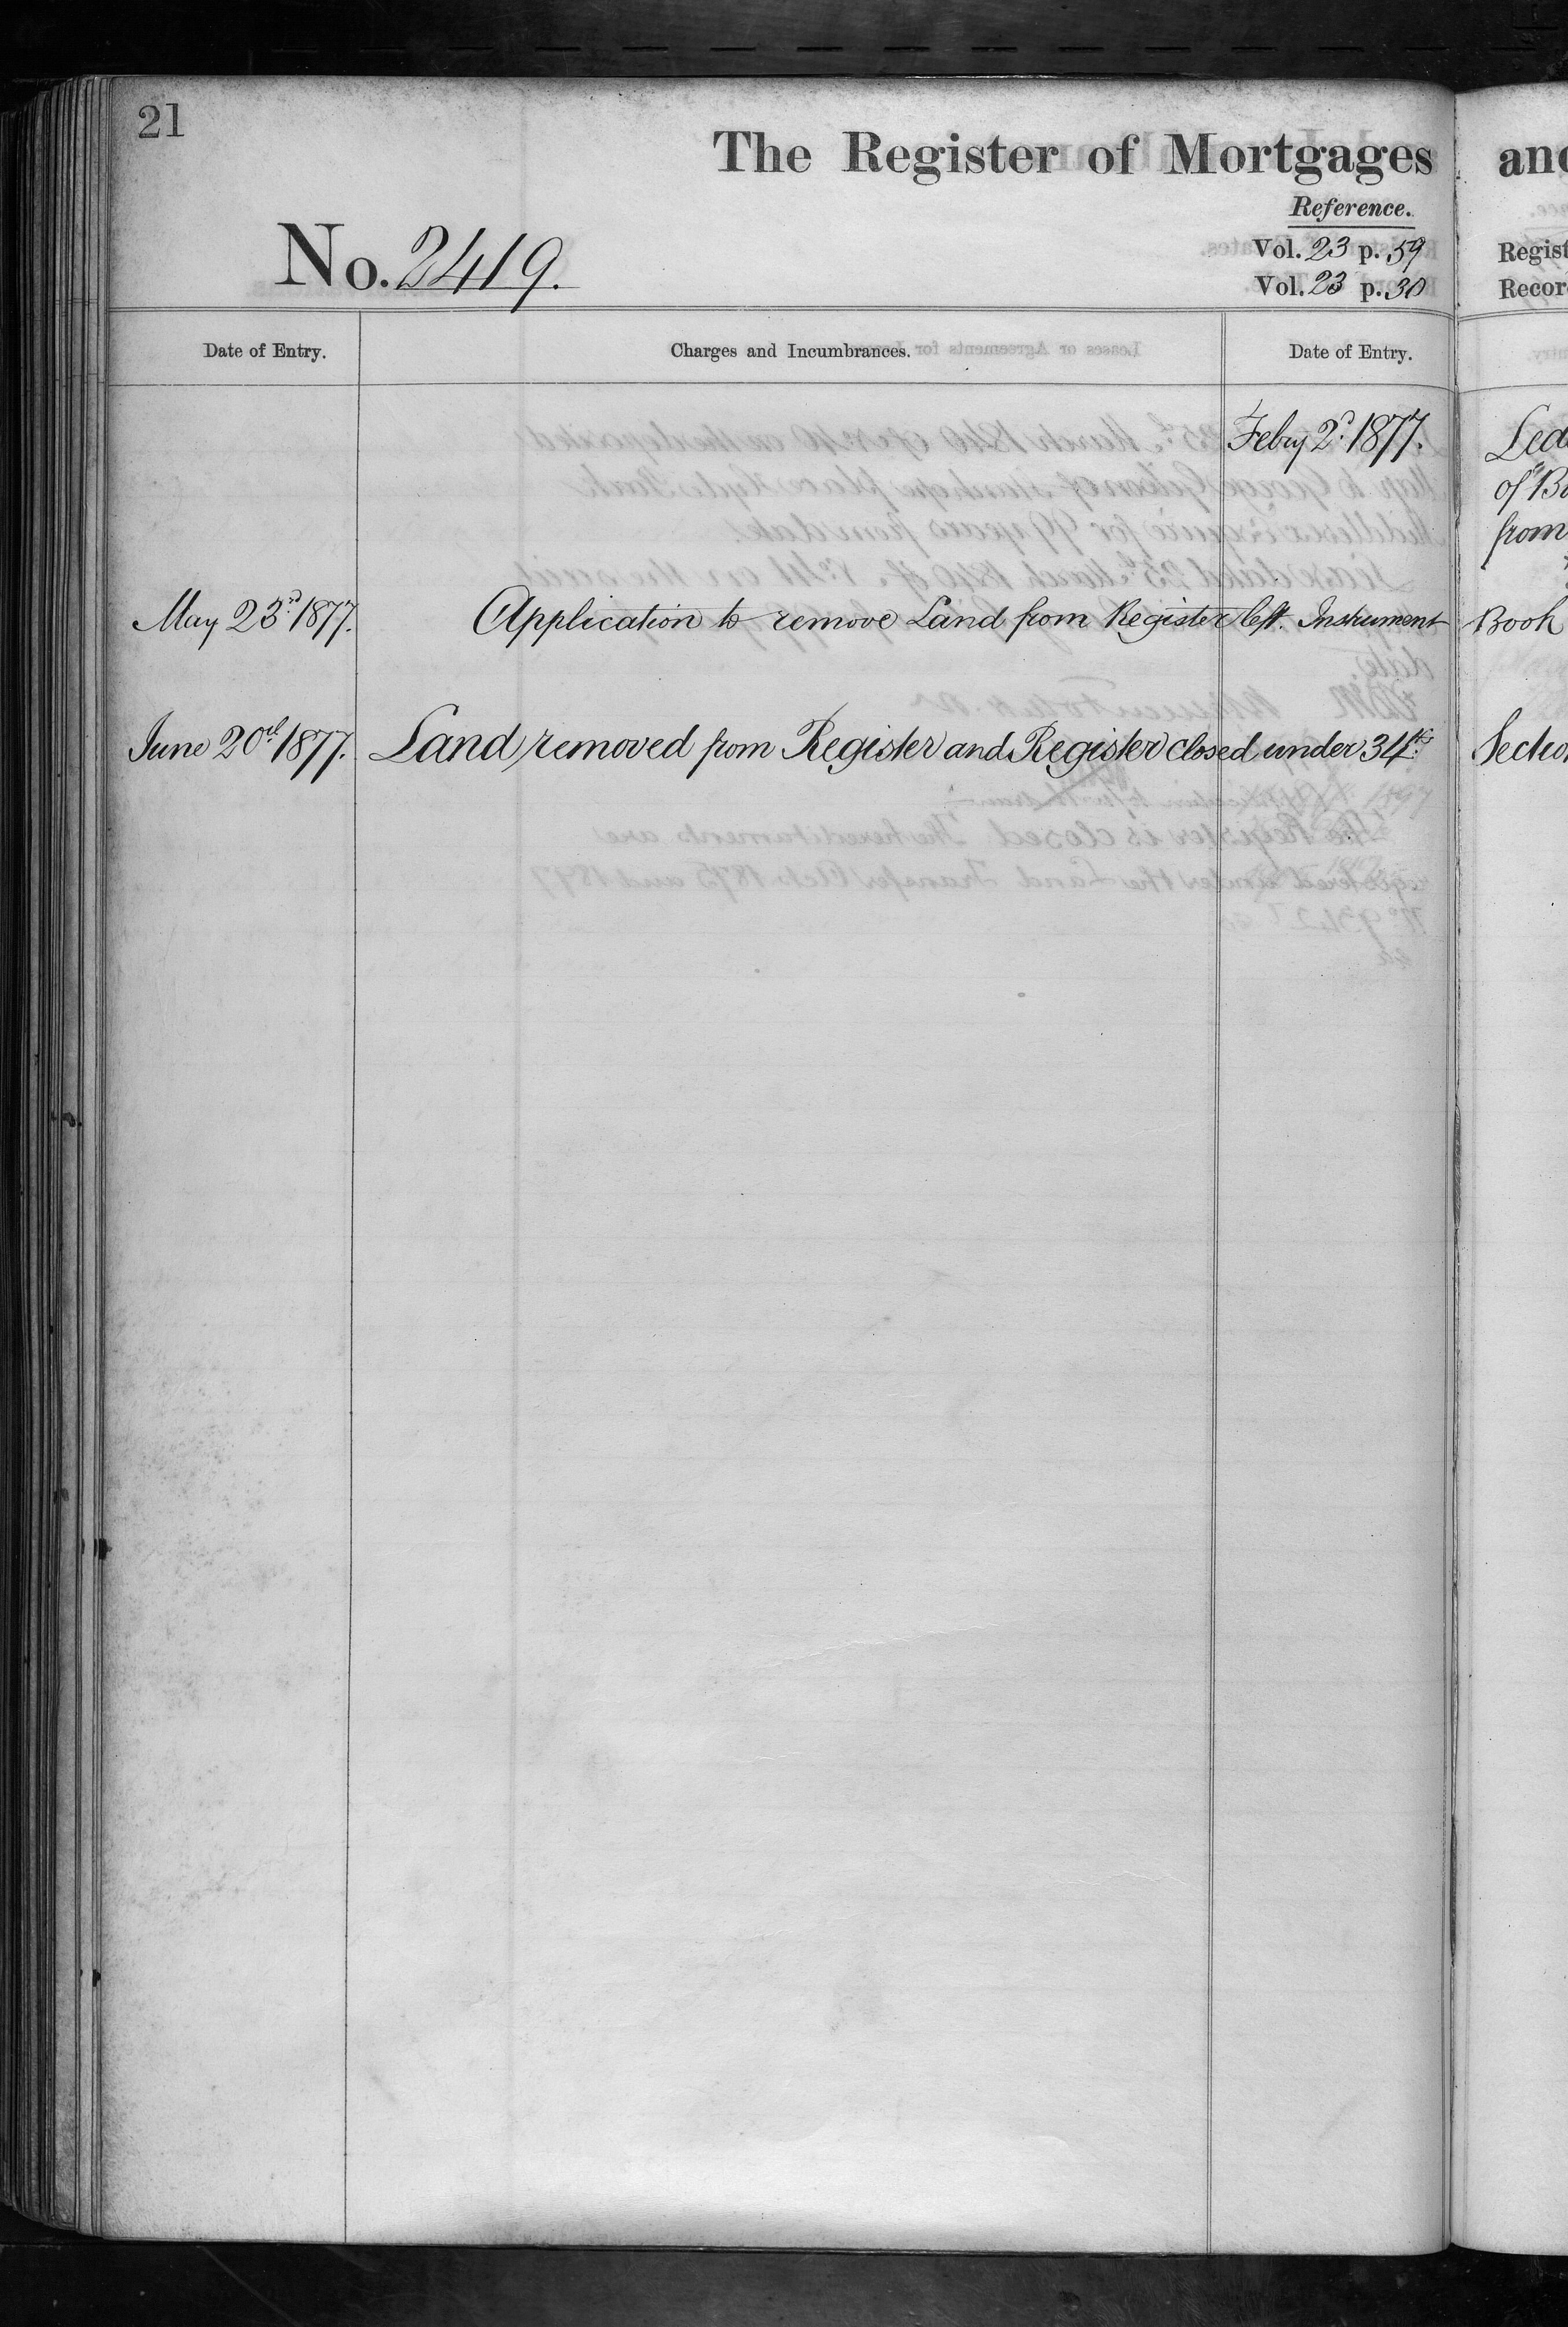 21
The Register of Mortgages
Reference.
No. 2419.
Vol. 23 p. 59
Regist
Vol. 23 p. 30
Recor
Date of Entry.
Charges and Incumbrances.
Date of Entry.
Feby 2d. 1877.
from
May 23d. 1877.
Application to remove Land from Register left. Instrument Book
June 20th 1877.
Land removed from Register and Register closed under 34th Sectio